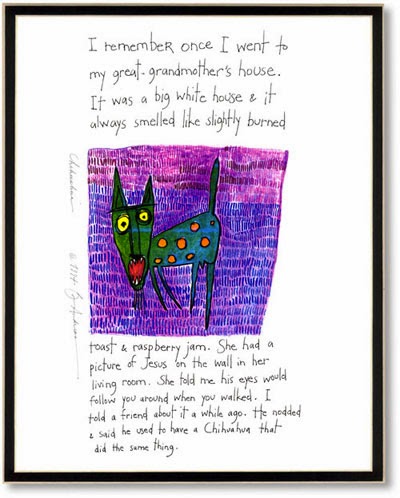 I remember once I went to
my great-grandmother's house.
It was a big white house & it
always smelled like slightly burned
Chihuahua
toast & raspberry jam. She had a
picture of Jesus on the wall in her
living room. She told me his eyes would
follow you around when you walked. I
told a friend about it a while ago. He nodded
& said he used to have a Chihuahua that
did the same thing.